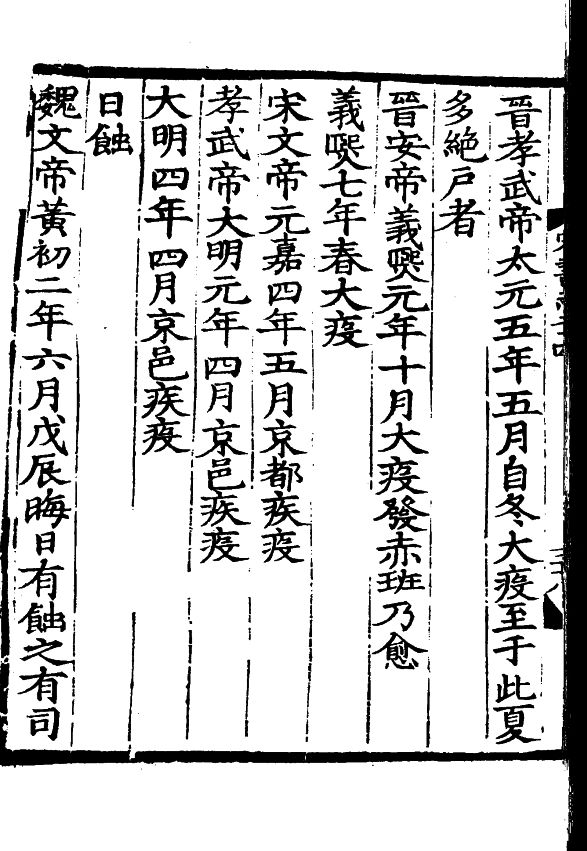 晉孝武帝太元五年五月自冬大疫至于此夏
多絶戸者
晉安帝義熙元年十月大疫發赤班乃愈
義熙七年春大疫
宋文帝元嘉四年五月京都疾疫
孝武帝大明元年四月京邑疾疫
大明四年四月京邑疾疫
日蝕
魏文帝黃初二年六月戊辰晦日有蝕之有司